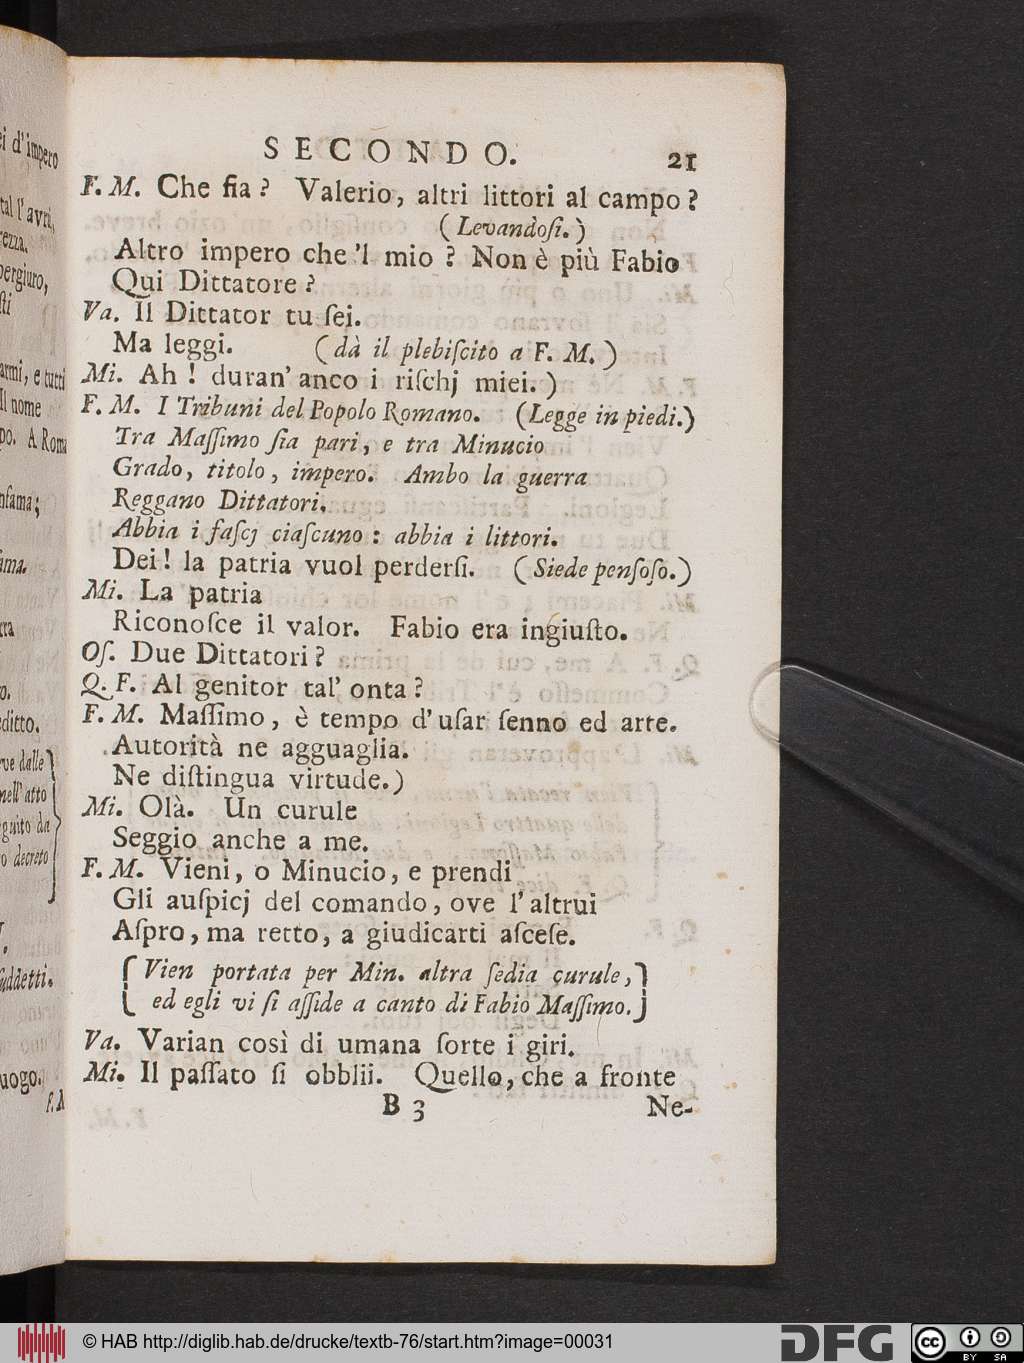 SECONDO. 21
F. M. Che fia? Valerio, altri littori al campo?
(Levandoſi.)
Altro impero che 'l mio? Non è più Fabio
Qui Dittatore?
Va. Il Dittator tu ſei.
Ma leggi. (dà il plebiſcito a F. M.)
Mi. Ah! duran' anco i riſchj miei.)
F. M. I Tribuni del Popolo Romano. (Legge in piedi.)
Tra Maſſimo ſia pari, e tra Minucio
Grado, titolo, impero. Ambo la guerra
Reggano Dittatori.
Abbia i faſcj ciaſcuno: abbia i littori.
Dei! la patria vuol perderſi. (Siede penſoſo.)
Mi. La patria
Riconoſce il valor. Fabio era ingiuſto.
Oſ. Due Dittatori?
Q. F. Al genitor tal' onta?
F. M. Maſſimo, è tempo d' uſar ſenno ed arte.
Autorità ne agguaglia.
Ne diſtingua virtude.)
Mi. Olà. Un curule
Seggio anche a me.
F. M. Vieni, o Minucio, e prendi
Gli auſpicj del comando, ove l' altrui
Aſpro, ma retto, a giudicarti aſceſe.
{ Vien portata per Min. altra ſedia curule, }
{ ed egli vi ſi aſſide a canto di Fabio Maſſimo. }
Va. Varian così di umana ſorte i giri.
Mi. Il paſſato ſi obblii. Quello, che a fronte
B 3 Ne-
ei d' impero
tal l' avrì,
ergiuro,
armi, e tutti
Il nome
po. A Roma
nfama;
ditto.
ve dalle
nell' atto
guito da
o decreto
ſuddetti.
uogo.
© HAB http://diglib.hab.de/drucke/textb-76/start.htm?image=00031
DFG
cc BY SA